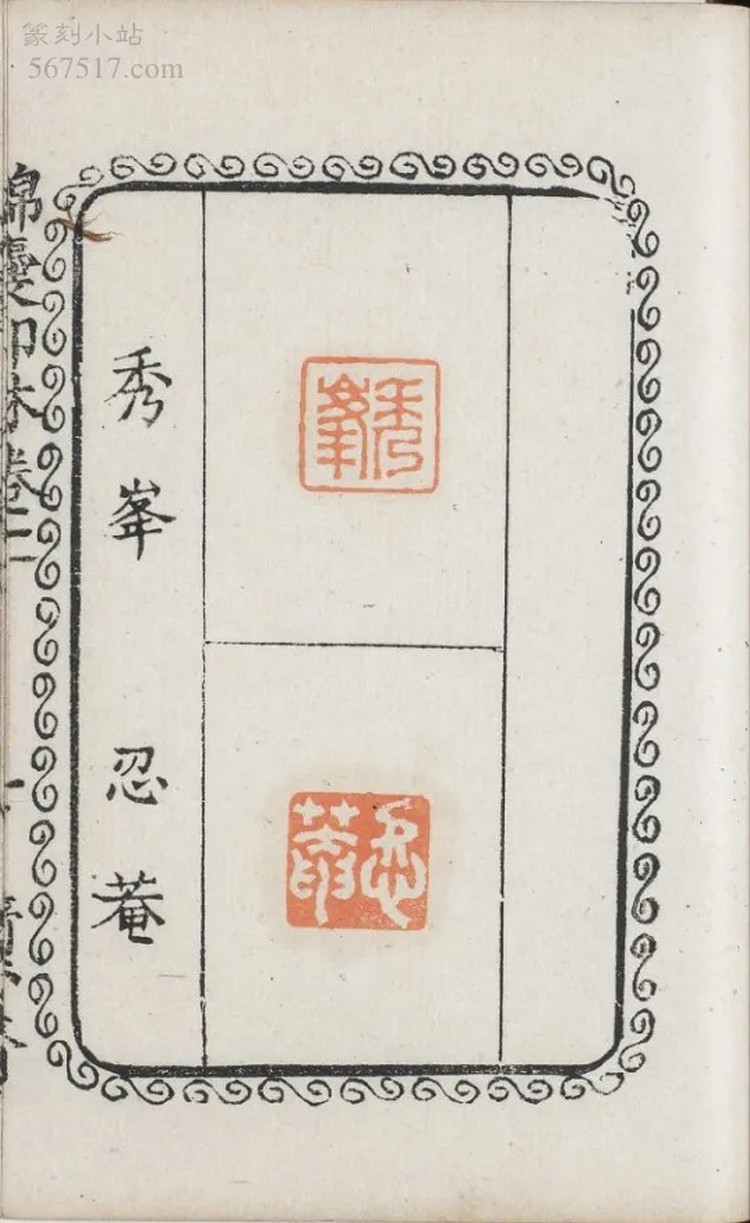 篆刻小站
567517.com
秀峯
忍菴
秀峯
忍菴
錦囊印林卷二